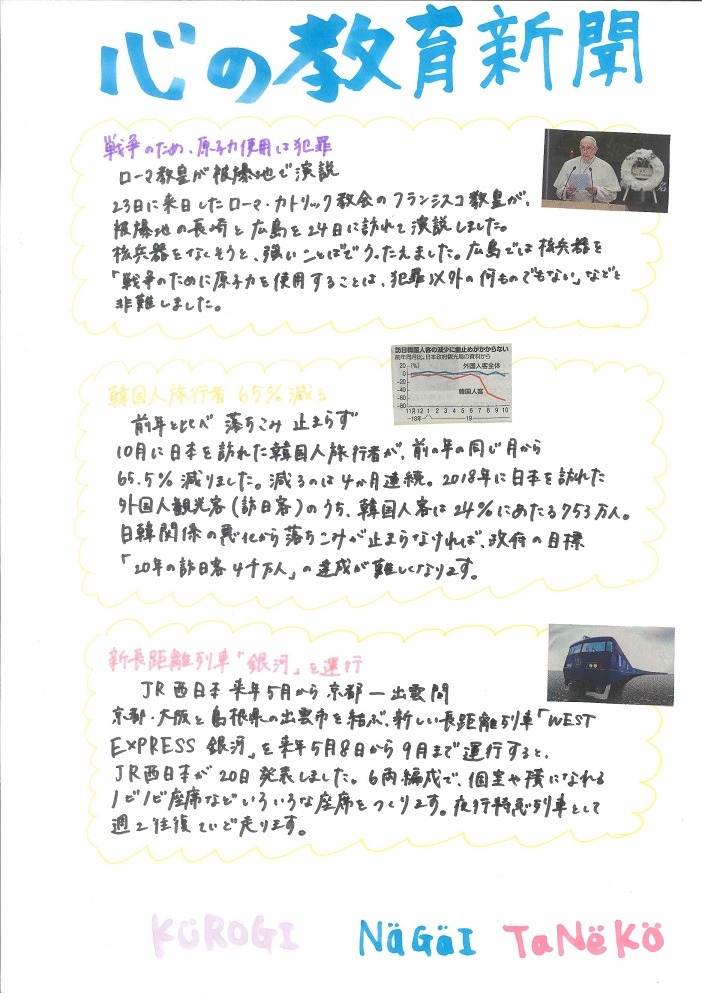 心の教育新聞
戦争のため、原子力使用は犯罪
ローマ教皇が被爆地で演説
23日に来日したローマ・カトリック教会のフランシスコ教皇が、
被爆地の長崎と広島を24日に訪れて演説しました。
核兵器をなくそうと、強いことばでうったえました。広島では核兵器を
「戦争のために原子力を使用することは、犯罪以外の何ものでもない」などと
非難しました。
訪日韓国人客の減少に歯止めがかからない
前年同月比。日本政府観光局の資料から
20 (%)
外国人客全体
0
-20
-40
韓国人客
-60
-80
11月12 1 2 3 4 5 6 7 8 9 10
-18年 19
韓国人旅行者 65%減る
前年と比べ 落ちこみ 止まらず
10月に日本を訪れた韓国人旅行者が、前の年の同じ月から
65.5%減りました。減るのは4か月連続。2018年に日本を訪れた
外国人観光客(訪日客)のうち、韓国人客は24%にあたる753万人。
日韓関係の悪化から落ちこみが止まらなければ、政府の目標
「20年の訪日客4千万人」の達成が難しくなります。
新長距離列車「銀河」を運行
JR西日本 来年5月から京都ー出雲間
京都・大阪と島根県の出雲市を結ぶ、新しい長距離列車「WEST
EXPRESS 銀河」を来年5月8日から9月まで運行すると、
JR西日本が20日発表しました。6両編成で、個室や横になれる
ノビノビ座席などいろいろな座席をつくります。夜行特急列車として
週2往復ていど走ります。
KÜROGI NäGäI TaNëKö